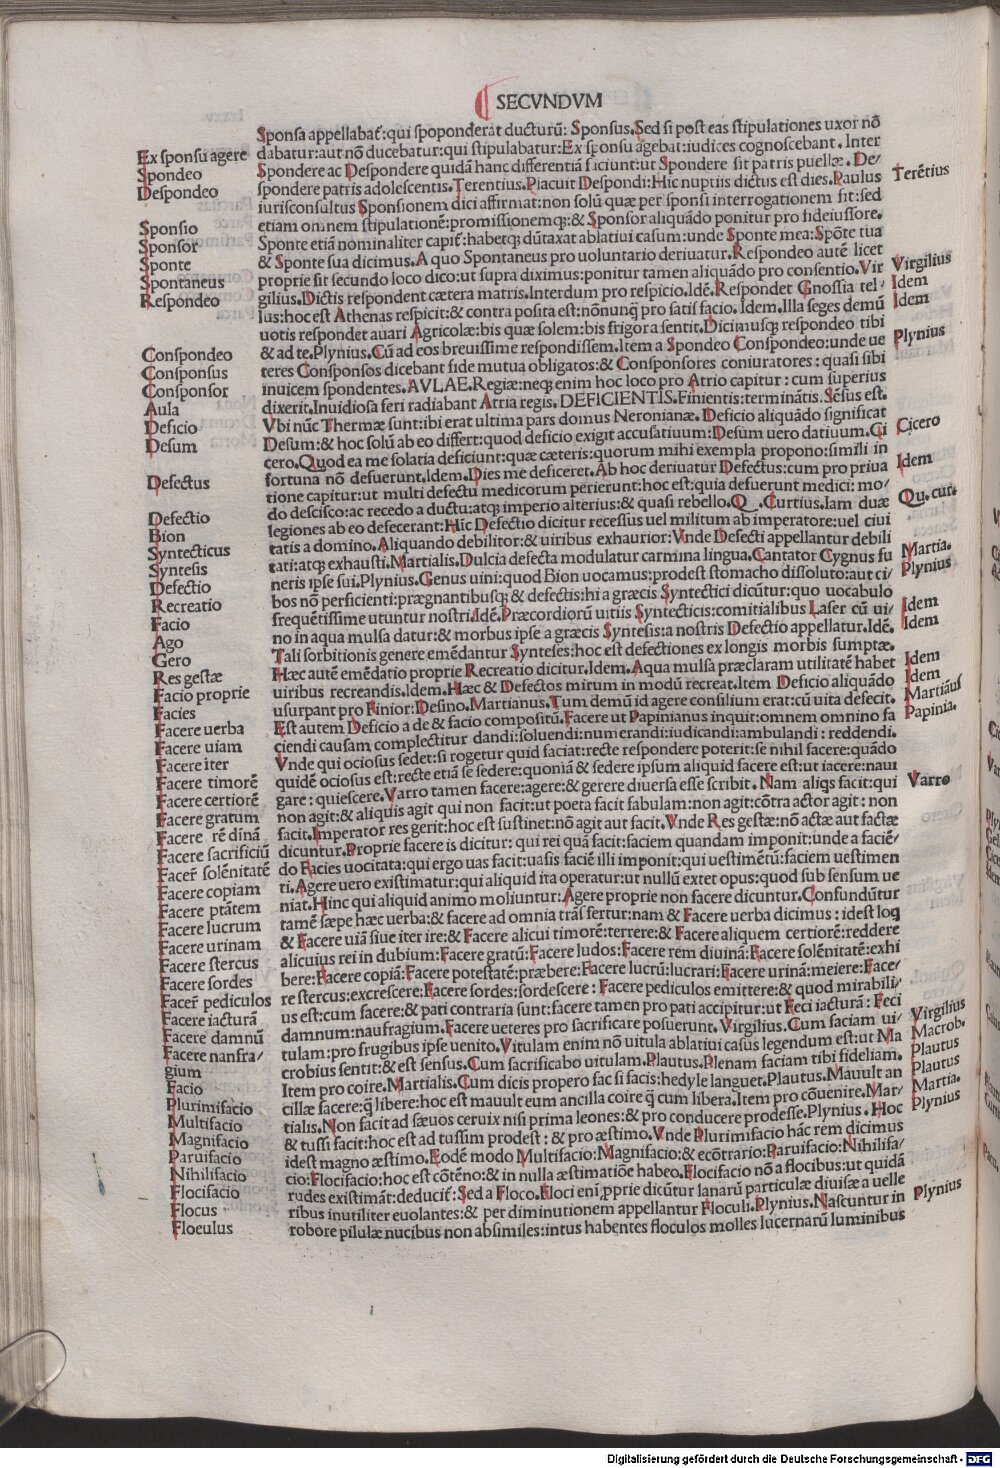 SECVNDVM
Sponsa appellabat᷑: qui spoponderat ducturũ: Sponsus. Sed si post eas stipulationes uxor nõ
dabatur: aut nõ ducebatur: qui stipulabatur: Ex sponsu agebat: iudices cognoscebant. Inter
Spondere ac Despondere quidã hanc differentiã faciunt: ut Spondere sit patris puellæ. De/
spondere patris adolescentis. Terentius. Placuit Despondi: Hic nuptiis dictus est dies. Paulus
iurisconsultus Sponsionem dici affirmat: non solũ quæ per sponsi interrogationem fit: sed
etiam omnem stipulationẽ: promissionemq;: & Sponsor aliquãdo ponitur pro fideiussore.
Sponte etiã nominaliter capit᷑: habetq; dũtaxat ablatiui casum: unde Sponte mea: Spõte tua
& Sponte sua dicimus. A quo Spontaneus pro uoluntario deriuatur. Respondeo autẽ licet
proprie sit secundo loco dico: ut supra diximus: ponitur tamen aliquãdo pro consentio. Vir
gilius. Dictis respondent cætera matris. Interdum pro respicio. Idẽ. Respondet Gnossia tel/
lus: hoc est Athenas respicit: & contra posita est: nõnunq̃ pro satis facio. Idem. Illa seges demũ
uotis respondet auari Agricolæ: bis quæ solem: bis frigora sentit. Dicimusq; respondeo tibi
& ad te. Plynius. Cũ ad eos breuissime respondissem. Item a Spondeo Conspondeo: unde ue
teres Consponsos dicebant fide mutua obligatos: & Consponsores coniuratores: quasi sibi
inuicem spondentes. AVLAE. Regiæ: neq; enim hoc loco pro Atrio capitur: cum superius
dixerit. Inuidiosa feri radiabant Atria regis. DEFICIENTIS. Finientis: terminãtis. Sẽsus est.
Vbi nũc Thermæ sunt: ibi erat ultima pars domus Neronianæ. Deficio aliquãdo significat
Desum: & hoc solũ ab eo differt: quod deficio exigit accusatiuum: Desum uero datiuum. Ci
cero. Quod ea me solatia deficiunt: quæ cæteris: quorum mihi exempla propono: simili in
fortuna nõ defuerunt. Idem. Dies me deficeret. Ab hoc deriuatur Defectus: cum pro priua
tione capitur: ut multi defectu medicorum perierunt: hoc est: quia defuerunt medici: mo/
do descisco: ac recedo a ductu: atq; imperio alterius: & quasi rebello. Q. Curtius. Iam duæ
legiones ab eo defecerant: Hic Defectio dicitur recessus uel militum ab imperatore: uel ciui
tatis a domino. Aliquando debilitor: & uiribus exhaurior: Vnde Defecti appellantur debili
tati: atq; exhausti. Martialis. Dulcia defecta modulatur carmina lingua. Cantator Cygnus fu
neris ipse sui. Plynius. Genus uini: quod Bion uocamus: prodest stomacho dissoluto: aut ci/
bos nõ perficienti: prægnantibusq; & defectis: hi a græcis Syntectici dicũtur: quo uocabulo
frequẽtissime utuntur nostri. Idẽ. Præcordiorũ uitiis Syntecticis: comitialibus Laser cũ ui/
no in aqua mulsa datur: & morbus ipse a græcis Syntesis: a nostris Defectio appellatur. Idẽ.
Tali sorbitionis genere emẽdantur Synteses: hoc est defectiones ex longis morbis sumptæ.
Hæc autẽ emẽdatio proprie Recreatio dicitur. Idem. Aqua mulsa præclaram utilitatẽ habet
uiribus recreandis. Idem. Hæc & Defectos mirum in modũ recreat. Item Deficio aliquãdo
usurpant pro Finior: Desino. Martianus. Tum demũ id agere consilium erat: cũ uita defecit.
Est autem Deficio a de & facio compositũ. Facere ut Papinianus inquit: omnem omnino fa
ciendi causam complectitur dandi: soluendi: numerandi: iudicandi: ambulandi: reddendi.
Vnde qui ociosus sedet: si rogetur quid faciat: recte respondere poterit: se nihil facere: quãdo
quidẽ ociosus est: recte etiã se sedere: quoniã & sedere ipsum aliquid facere est: ut iacere: naui
gare: quiescere. Varro tamen facere: agere: & gerere diuersa esse scribit. Nam aliq̃s facit: qui
non agit: & aliquis agit qui non facit: ut poeta facit fabulam: non agit: cõtra actor agit: non
facit. Imperator res gerit: hoc est sustinet: nõ agit aut facit. Vnde Res gestæ: nõ actæ aut factæ
dicuntur. Proprie facere is dicitur: qui rei quã facit: faciem quandam imponit: unde a faciẽ/
do Facies uocitata: qui ergo uas facit: uasis faciẽ illi imponit: qui uestimẽtũ: faciem uestimen
ti. Agere uero existimatur: qui aliquid ita operatur: ut nullũ extet opus: quod sub sensum ue
niat. Hinc qui aliquid animo moliuntur: Agere proprie non facere dicuntur. Confundũtur
tamẽ sæpe hæc uerba: & facere ad omnia trãsfertur: nam & Facere uerba dicimus: idest loq
& Facere uiã siue iter ire: & Facere alicui timorẽ: terrere: & Facere aliquem certiorẽ: reddere
alicuius rei in dubium: Facere gratũ: Facere ludos: Facere rem diuinã: Facere solẽnitatẽ: exhi
bere: Facere copiã: Facere potestatẽ: præbere: Facere lucrũ: lucrari: Facere urinã: meiere: Face/
re stercus: excrescere: Facere sordes: sordescere: Facere pediculos emittere: & quod mirabili/
us est: cum facere: & pati contraria sunt: facere tamen pro pati accipitur: ut Feci iacturã: Feci
damnum: naufragium. Facere ueteres pro sacrificare posuerunt. Virgilius. Cum faciam ui/
tulam: pro frugibus ipse uenito. Vitulam enim nõ uitula ablatiui casus legendum est: ut Ma
crobius sentit: & est sensus. Cum sacrificabo uitulam. Plautus. Plenam faciam tibi fideliam.
Item pro coire. Martialis. Cum dicis propero fac si facis: hedyle languet. Plautus. Mauult an
cillæ facere: q̃ libere: hoc est mauult eum ancilla coire q̃ cum libera. Item pro cõuenire. Mar/
tialis. Non facit ad sæuos ceruix nisi prima leones: & pro conducere prodesse. Plynius. Hoc
& tussi facit: hoc est ad tussim prodest: & pro æstimo. Vnde Plurimifacio hãc rem dicimus
idest magno æstimo. Eodẽ modo Multifacio: Magnifacio: & ecõtrario: Paruifacio: Nihilifa/
cio: Flocifacio: hoc est cõtẽno: & in nulla æstimatiõe habeo. Flocifacio nõ a flocibus: ut quidã
rudes existimãt: deducit᷑: Sed a Floco. Floci eni ꝓprie dicũtur lanarũ particulæ diuisæ a uelle
ribus inutiliter euolantes: & per diminutionem appellantur Floculi. Plynius. Nascuntur in
robore pilulæ nucibus non absimiles: intus habentes floculos molles lucernarũ luminibus
Ex sponsu agere
Spondeo
Despondeo
Sponsio
Sponsor
Sponte
Spontaneus
Respondeo
Conspondeo
Consponsus
Consponsor
Aula
Deficio
Desum
Defectus
Defectio
Bion
Syntecticus
Syntesis
Defectio
Recreatio
Facio
Ago
Gero
Res gestæ
Facio proprie
Facies
Facere uerba
Facere uiam
Facere iter
Facere timorẽ
Facere certiorẽ
Facere gratum
Facere rẽ diñã
Facere sacrificiũ
Facer̃ solẽnitatẽ
Facere copiam
Facere ptãtem
Facere lucrum
Facere urinam
Facere stercus
Facere sordes
Facer̃ pediculos
Facere iacturã
Facere damnũ
Facere nanfra/
gium
Facio
Plurimifacio
Multifacio
Magnifacio
Paruifacio
Nihilifacio
Flocifacio
Flocus
Floeulus
Terẽtius
Virgilius
Idem
Idem
Plynius
Cicero
Idem
Qu. cur.
Martia.
Plynius
Idem
Idem
Idem
Idem
Martiãus
Papinia.
Varro
Virgilius
Macrob.
Plautus
Plautus
Martia.
Plynius
Plynius
Digitalisierung gefördert durch die Deutsche Forschungsgemeinschaft - DFG